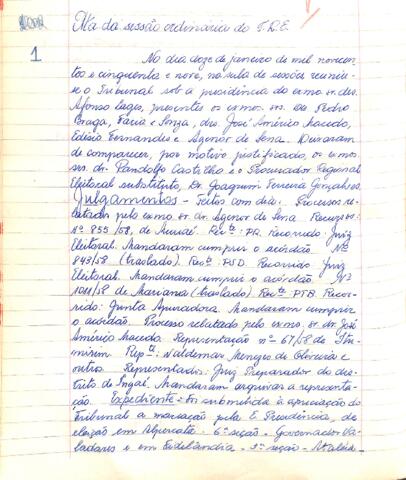 Ata da sessão ordinária do T.R.E.
1
No dia doze de janeiro de mil novecen-
tos e cinquenta e nove, na sala de sessões reuniu-
se o Tribunal sob a presidência do exmo sr. des.
Afonso Lages, presentes os exmos. srs. des. Pedro
Braga, Faria e Sousa, drs. José Américo Macedo,
Edésio Fernandes e Agenor de Sena. Deixaram
de comparecer, por motivo justificado, os exmos.
srs. dr. Pandolfo Castilho e o Procurador Regional
Eleitoral substituto, Dr. Joaquim Ferreira Gonçalves.
Julgamentos - Feitos com dia. Processos re-
latados pelo exmo. sr. dr. Agenor de Sena. Recurso
Nº 855/58, de Rec.te: PR. Recorrido: Juiz
Eleitoral. Mandaram cumprir o acórdão. Nº
843/58 (traslado). Rec.te: PSD. Recorrido: Juiz
Eleitoral. Mandaram cumprir o acórdão. Nº
1011/58 de Mariana (traslado) Rec.te: PTB. Recor-
rido: Junta Apuradora. Mandaram cumprir
o acórdão. Processo relatado pelo exmo. sr. dr. José
Américo Macedo. Representação nº 67/58 de Itu-
mirim. Rep.te: Valdemar Menezes de Oliveira e
outro. Representado: Juiz Preparador do dis-
trito de Ingaí. Mandaram arquivar a representa-
ção. Expediente = Foi submetida à apreciação do
Tribunal a marcação pela E. Presidência, de
eleição em Alpercata - 6ª seção - Governador Va-
ladares e em Fidelândia - 2ª seção - Ataléia -